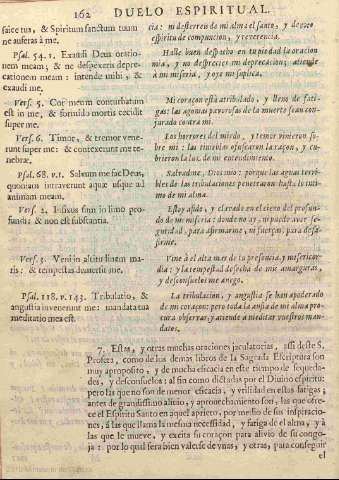 162 DUELO ESPIRITUAL.
facie tua, & Spiritum sanctum tuum
ne auferas à me.
Psal. 54. 1. Exaudi Deus oratio-
nem meam; & ne despexeris depre-
cationem meam: intende mihi, &
exaudi me.
Vers. 5. Cor meum conturbatum
est in me, & formido mortis cecidit
super me.
Vers. 6. Timor, & tremor vene-
runt super me: & contexerunt me te-
nebræ.
Psal. 68. v. 1. Salvum me fac Deus,
quoniam intraverunt aquæ usque ad
animam meam.
Vers. 2. Infixus sum in limo pro-
fundi: & non est substantia.
Vers. 3. Veni in altitudinem ma-
ris: & tempestas demersit me.
Psal. 118. v. 143. Tribulatio, &
angustia invenerunt me: mandata tua
meditatio mea est.
cia: ni desterreis de mi alma el santo, y
espiritu de compuncion, y reverencia.
Halle buen despacho en tu piedad la oracion
mia, y no desprecies mi deprecacion; atiende
à mi miseria, y oye mi suplica.
Mi coraçon està atribulado, y lleno de fati-
gas: las agonias pavorosas de la muerte se an con-
jurado contra mi.
Los horrores del miedo, y temor vinieron so-
bre mi: las tinieblas ofuscaron la raçon, y cu-
brieron la luz de mi entendimiento.
Salvadme, Dios mio: porque las aguas terri-
bles de las tribulaciones penetraron hasta lo inti-
mo de mi alma.
Estoy asido, y clavado en el cieno del profun-
do de mi miseria: donde no ay, ni puede aver se-
guridad, para afirmarme, ni fuerças, para desa-
sirme.
Vine à el alta mar de tu presencia, y misericor-
dia: y la tempestad deshecha de mis amarguras,
y desconsuelos me anegò.
La tribulacion, y angustia se han apoderado
de mi coraçon: pero toda la ansia de mi alma pro-
cura observar, y atiende à meditar vuestros man-
datos.
7. Estas, y otras muchas oraciones jaculatorias, assi de este S.
Profeta, como de los demas libros de la Sagrada Escriptura son
muy aproposito, y de mucha eficacia en este tiempo de sequeda-
des, y desconsuelos; al fin como dictadas por el Divino espiritu:
pero las que no son de menor eficacia, y utilidad en estas fatigas;
antes de grandissimo alivio, y aprovechamiento son, las que ofre-
ce el Espiritu Santo en aquel aprieto, por medio de sus inspiracio-
nes, à las que llama la mesma necessidad, y fatiga de el alma, y à
las que le mueve, y excita su coraçon para alivio de sus congo-
ja: por lo qual sera bien valerse de unas, y otras, para conseguir
el